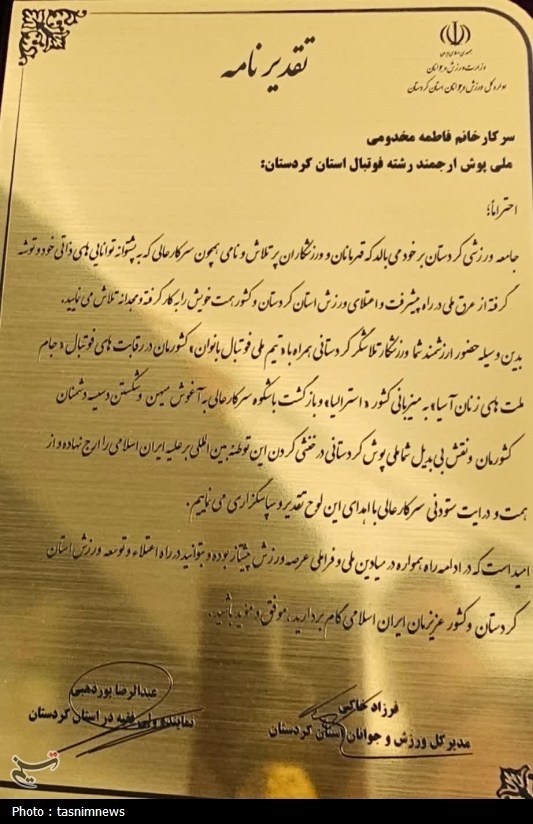 جمهوری اسلامی ایران
وزارت ورزش و جوانان
اداره کل ورزش و جوانان استان کردستان
تقدیر نامه
سرکار خانم فاطمه مخدومی
ملی پوش ارجمند رشته فوتبال استان کردستان:
احتراماً؛
جامعه ورزشی کردستان بر خود می بالد که قهرمانان و ورزشکاران پر تلاش و نامی همچون سرکار عالی که به پشتوانه توانایی های ذاتی خود و توشه
گرفته از عرق ملی در راه پیشرفت و اعتلای ورزش استان کردستان و کشور همت خویش را به کار گرفته و مجدانه تلاش می نمایید.
بدین وسیله حضور ارزشمند شما ورزشکار تلاشگر کردستانی همراه با «تیم ملی فوتبال بانوان» کشورمان در رقابت های فوتبال «جام
ملت های زنان آسیا» به میزبانی کشور «استرالیا» و بازگشت باشکوه سرکار عالی به آغوش میهن و شکستن دسیسه دشمنان
کشورمان و نقش بی بدیل شما ملی پوش کردستانی در خنثی کردن این توطئه بین المللی بر علیه ایران اسلامی را ارج نهاده و از
همت و درایت ستودنی سرکار عالی با اهدای این لوح تقدیر و سپاسگزاری می نماییم.
امید است که در ادامه راه همواره در میادین ملی و فراملی عرصه ورزش پیشتاز بوده و بتوانید در راه اعتلاء و توسعه ورزش استان
کردستان و کشور عزیزمان ایران اسلامی گام بردارید، موفق و مؤید باشید.
فرزاد خاکی
مدیر کل ورزش و جوانان استان کردستان
عبدالرضا پورذهبی
نماینده ولی فقیه در استان کردستان
تسنیم
Photo : tasnimnews